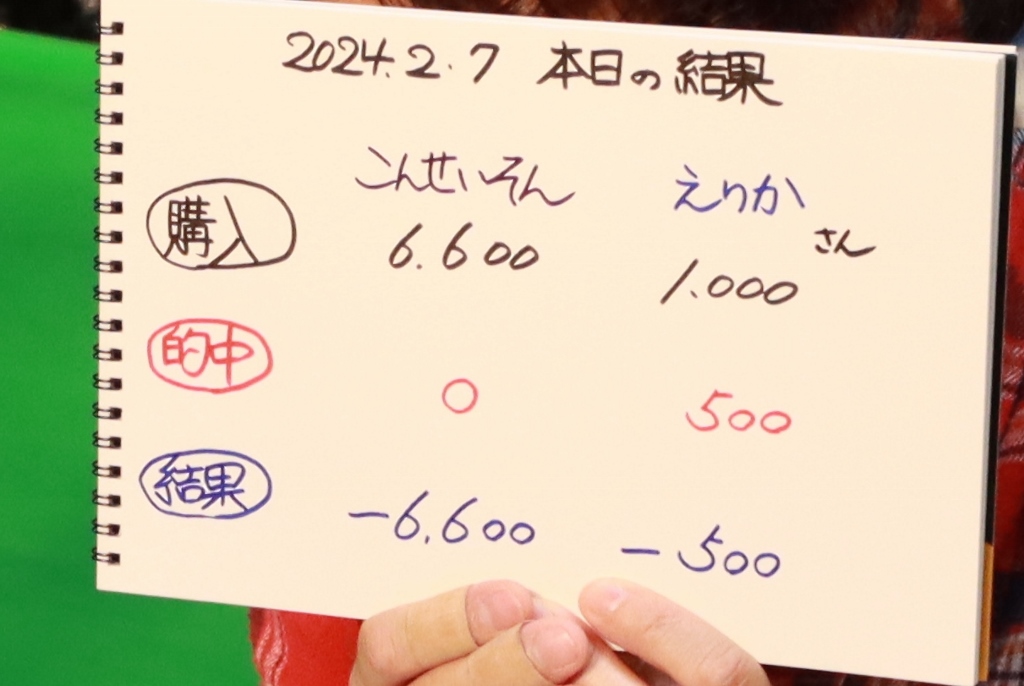 2024.2.7 本日の結果
こんせいそん えりかさん
購入 6.600 1.000
的中 0 500
結果 -6.600 -500